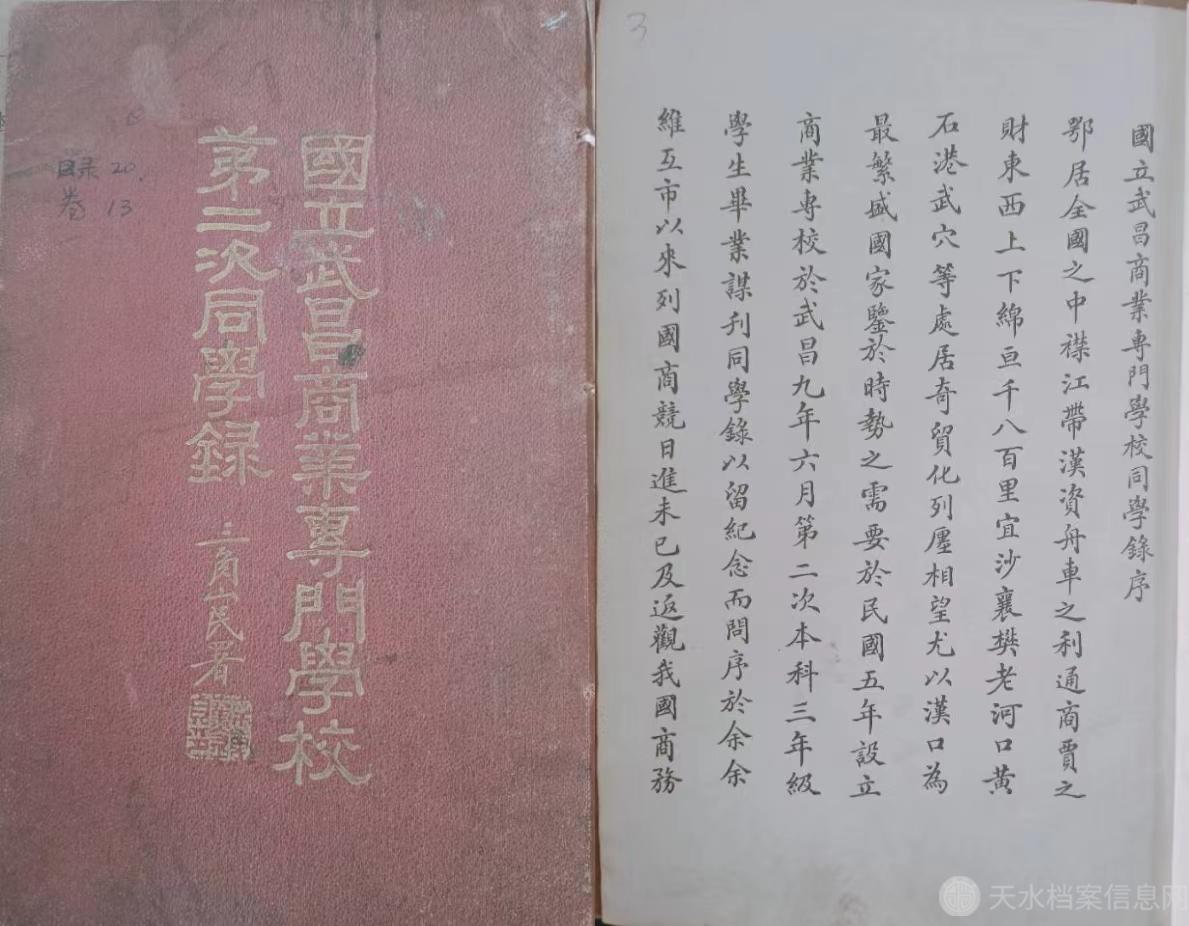 國立武昌商業專門學校
第二次同學録
三角山民署
目录20
卷13
3
國立武昌商業專門學校同學錄序
鄂居全國之中襟江帶漢資舟車之利通商賈之
財東西上下綿亘千八百里宜沙襄樊老河口黃
石港武穴等處居奇貿化列廛相望尤以漢口為
最繁盛國家鑒於時勢之需要於民國五年設立
商業專校於武昌九年六月第二次本科三年級
學生畢業謀刋同學錄以留紀念而問序於余余
維互市以來列國商競日進未已及返觀我國商務
天水档案信息网